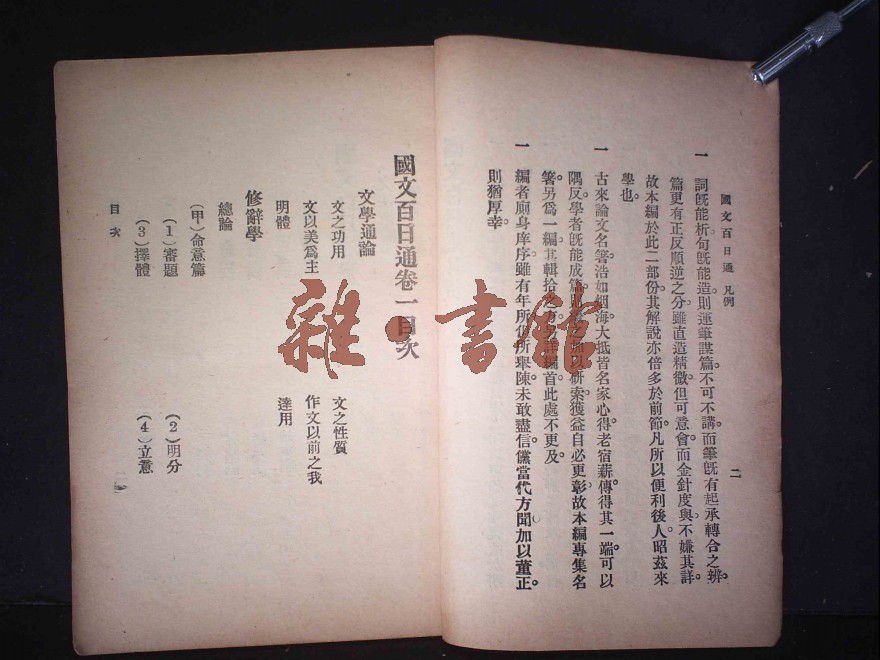 國文百日通 凡例
二
一 詞旣能析。句旣能造。則運筆謀篇。不可不講。而筆旣有起承轉合之辨。
篇更有正反順逆之分。雖直造精微。但可意會。而金針度與。不嫌其詳。
故本編於此二部份。其解說亦倍多於前節。凡所以便利後人。昭茲來
學也。
一 古來論文名箸。浩如烟海。大抵皆名家心得。老宿薪傳。得其一端。可以
隅反。學者旣能成篇。研索。獲益自必更彰。故本編專集名
箸。另爲一編。其輯拾之 編首。此處不更及。
一 編者廁身庠序。雖有年所。但所舉陳。未敢盡信。儻當代方聞。加以董正。
則猶厚幸
國文百日通卷一目次
文學通論
文之功用 文之性質
文以美爲主 作文以前之我
明體 達用
修辭學
總論
（甲）命意篇
（1）審題 （2）明分
（3）擇體 （4）立意
目次
一
雜·書館